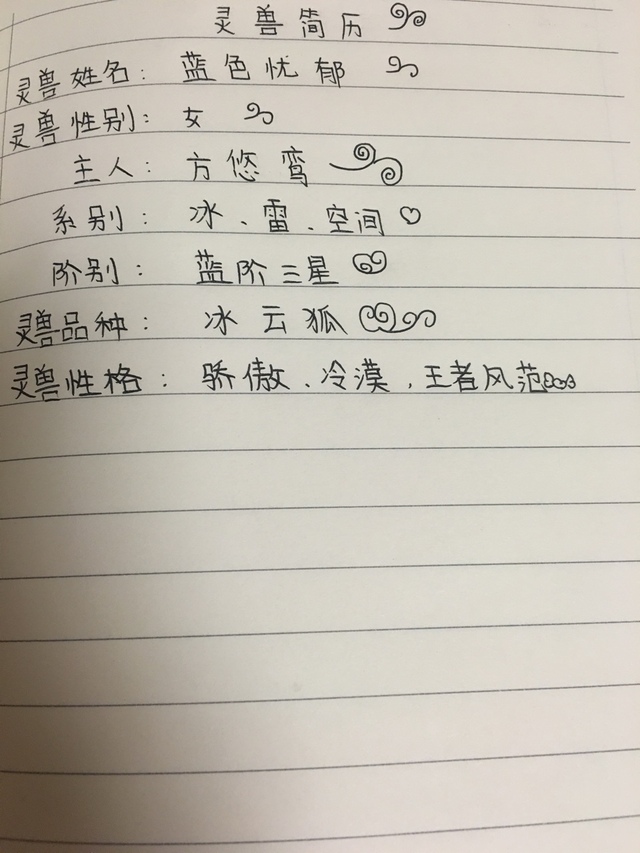 灵兽简历
灵兽姓名：蓝色忧郁
灵兽性别：女
主人：方悠鸾
系别：冰、雷、空间
阶别：蓝阶三星
灵兽品种：冰云狐
灵兽性格：骄傲、冷漠，王者风范